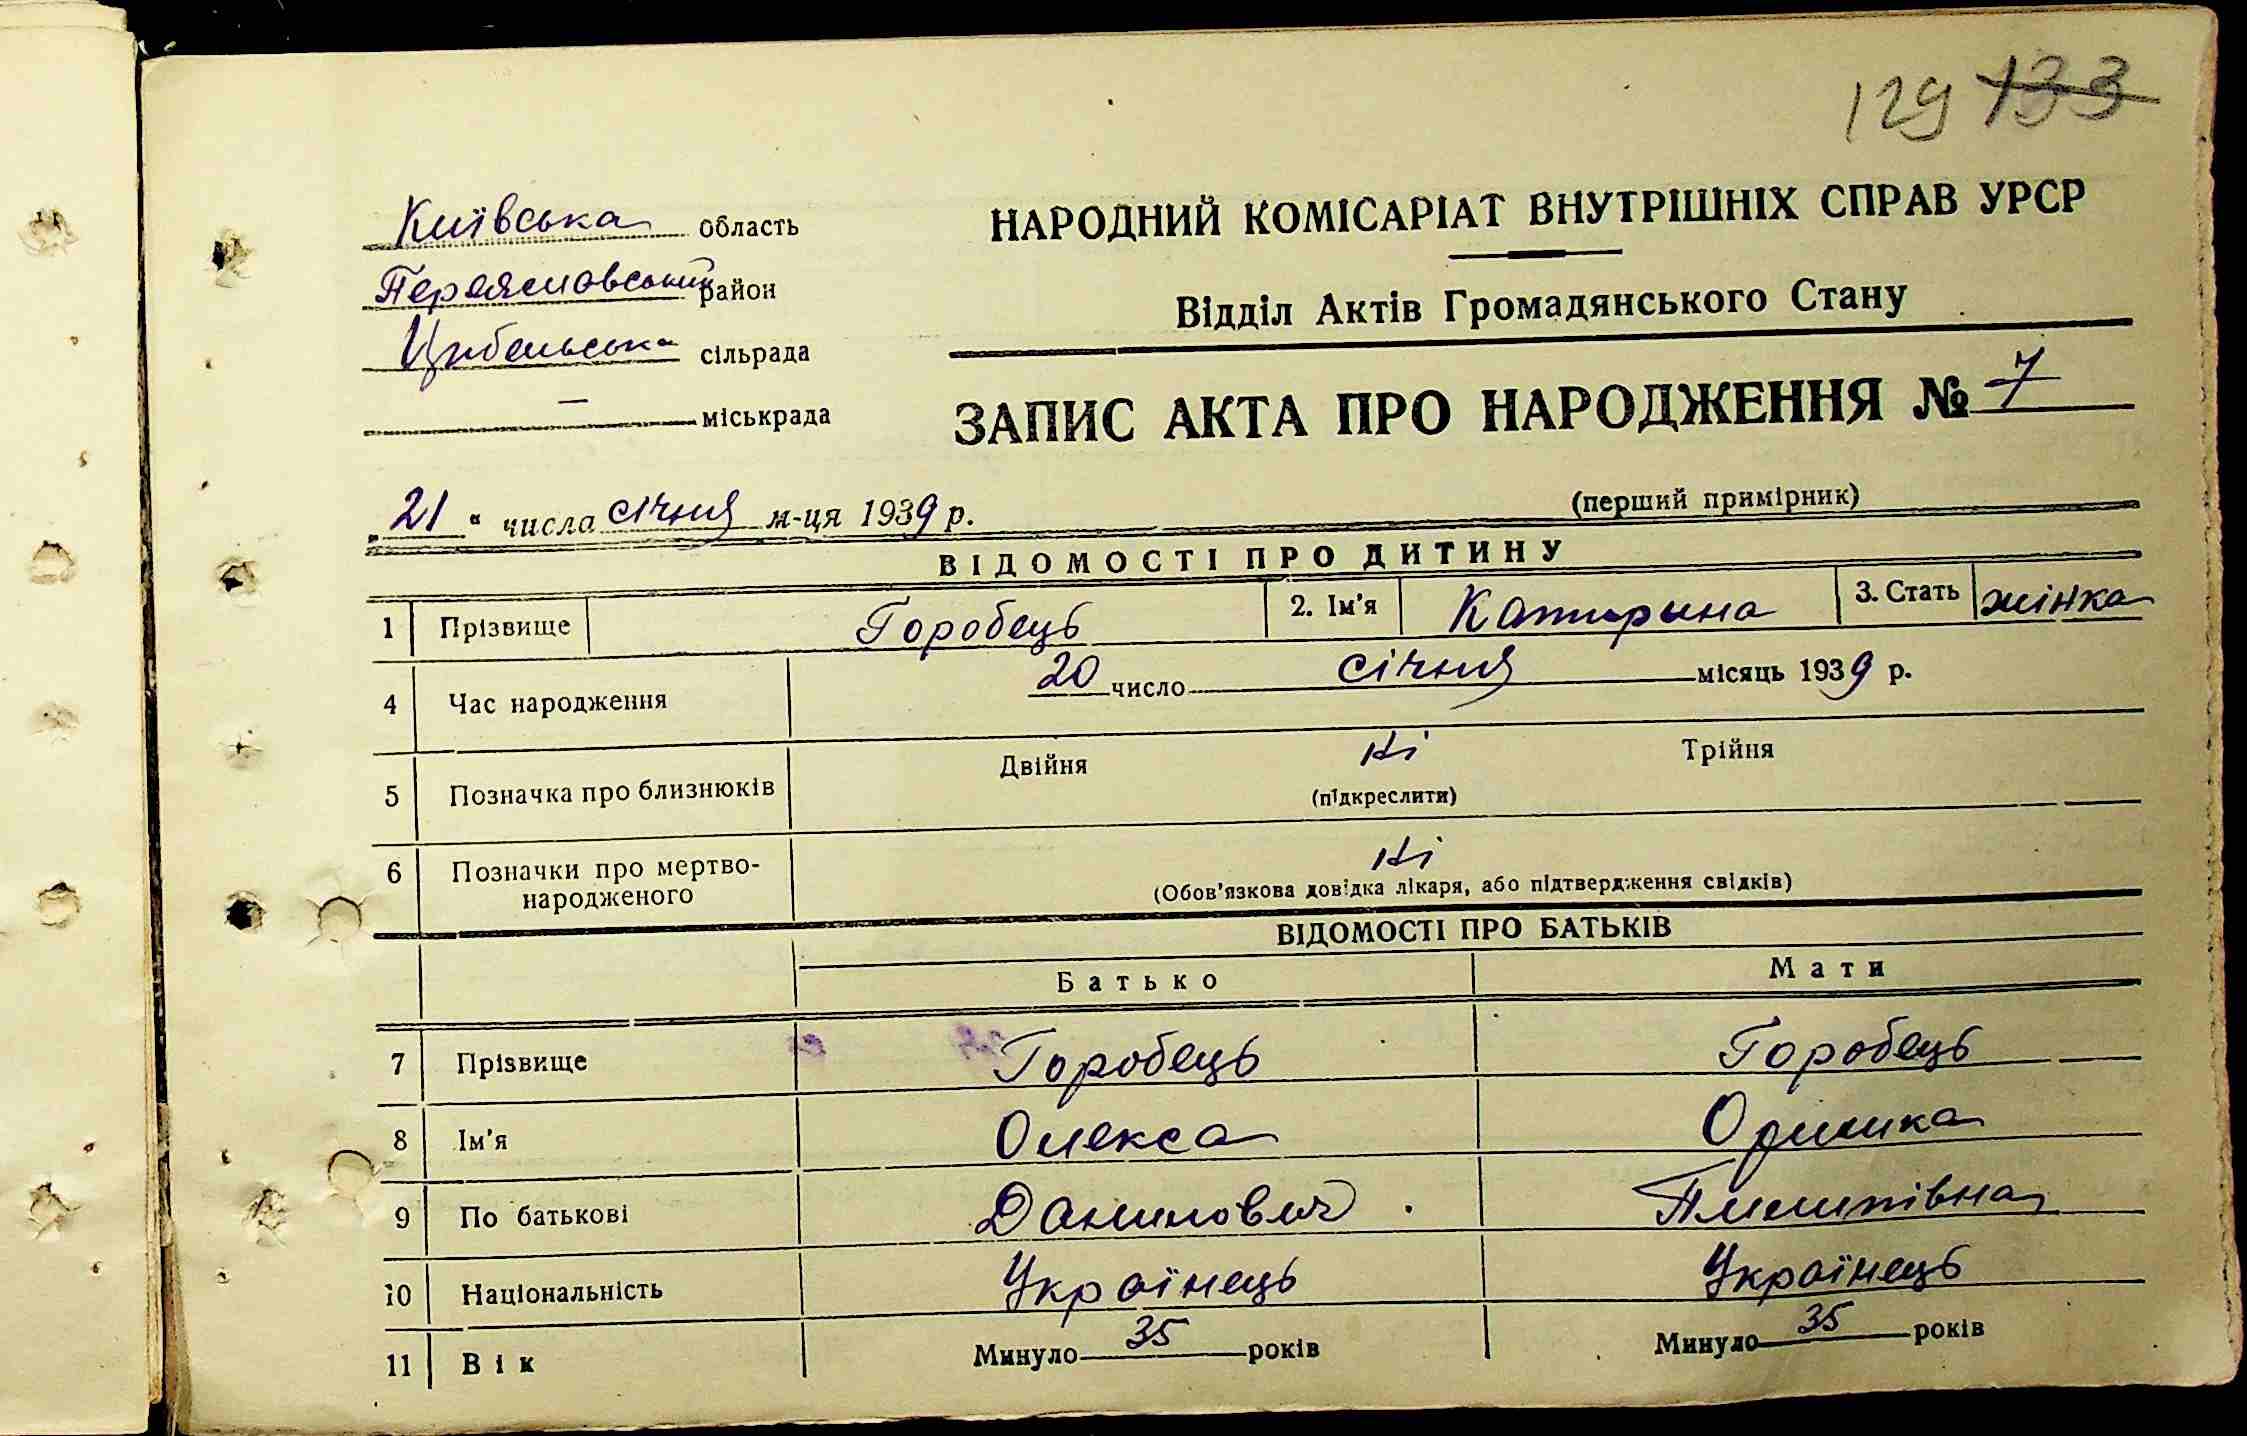 129 133
Київська область
Переяславський район
Цибельська сільрада
— міськрада
НАРОДНИЙ КОМІСАРІАТ ВНУТРІШНІХ СПРАВ УРСР
Відділ Актів Громадянського Стану
ЗАПИС АКТА ПРО НАРОДЖЕННЯ № 7
„21“ числа січня м-ця 1939 р.
(перший примірник)
ВІДОМОСТІ ПРО ДИТИНУ
1 Прізвище Горобець 2. Ім'я Катирына 3. Стать жінка
4 Час народження 20 число січня місяць 1939 р.
5 Позначка про близнюків Двійня ні Трійня
(підкреслити)
6 Позначки про мертвонародженого ні
(Обов'язкова довідка лікаря, або підтвердження свідків)
ВІДОМОСТІ ПРО БАТЬКІВ
Батько Мати
7 Прізвище Горобець Горобець
8 Ім'я Олекса
9 По батькові Данилович Пилипівна
10 Національність Українець Українець
11 Вік Минуло 35 років Минуло 35 років